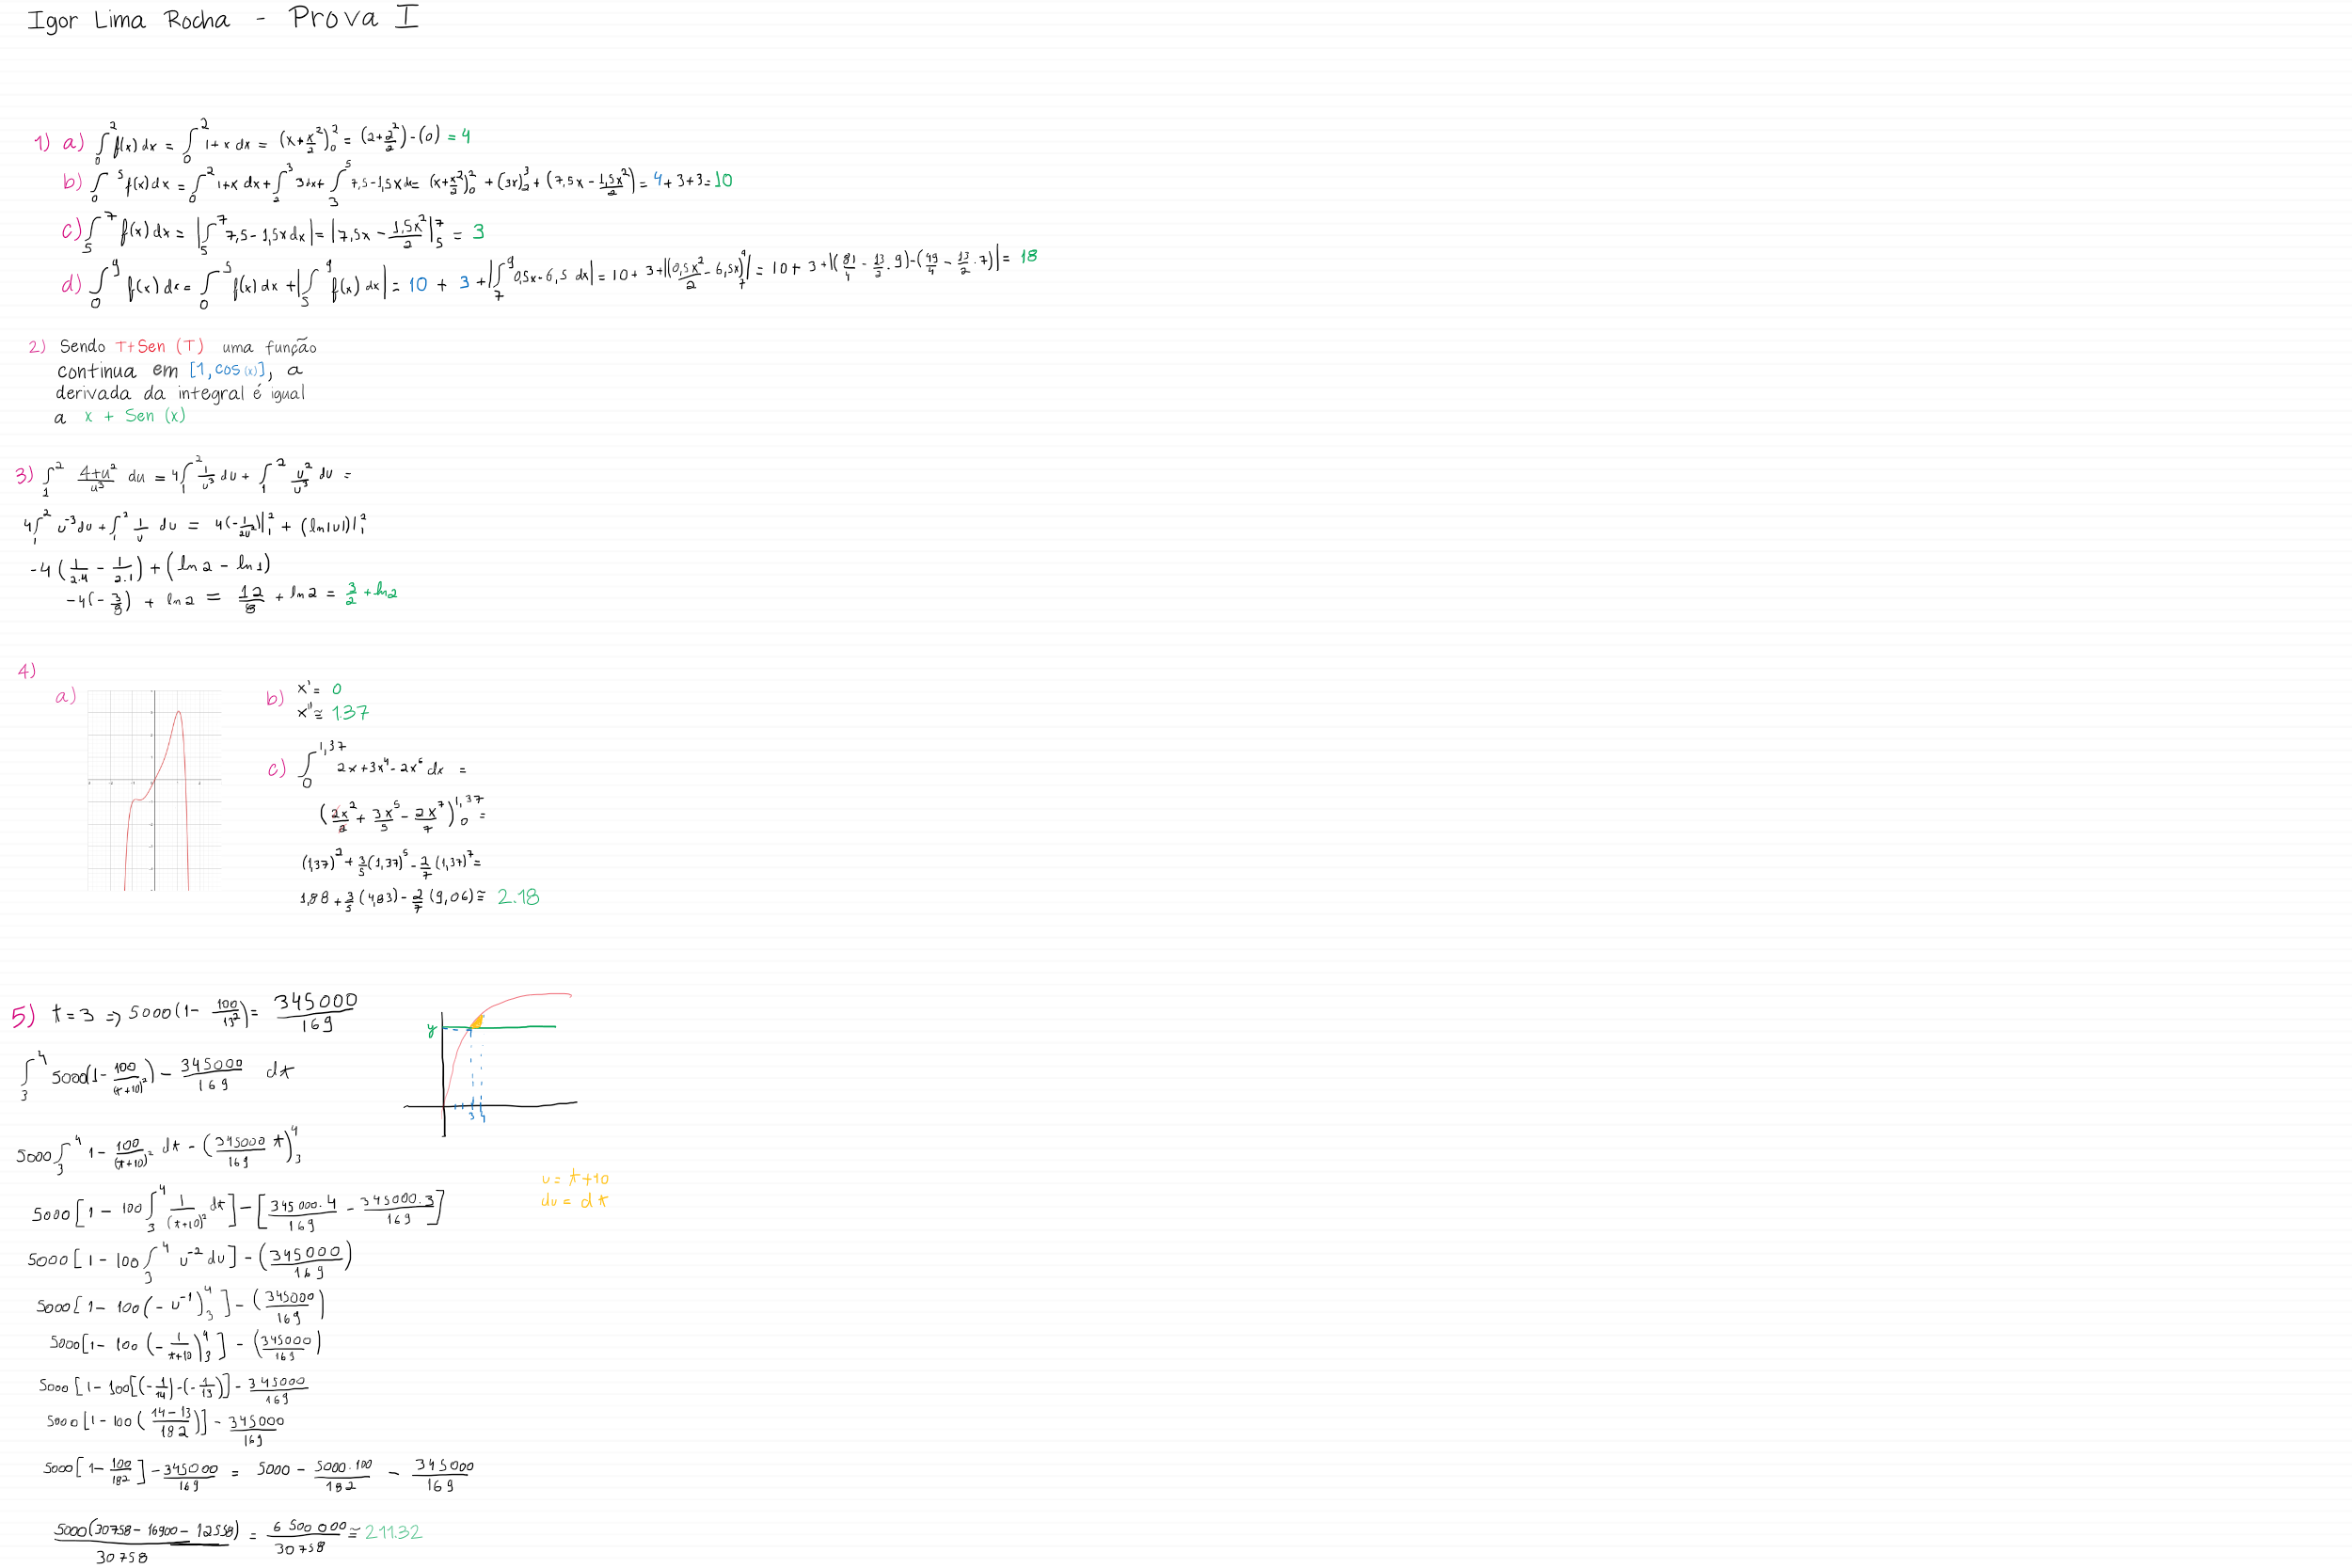 Igor Lima Rocha - Prova I
1) a) ∫₀² f(x) dx = ∫₀² 1+x dx = (x+x²/2)₀² = (2+2²/2)-(0) = 4
b) ∫₀⁵ f(x) dx = ∫₀² 1+x dx + ∫₂³ 3dx + ∫₃⁵ 7,5-1,5x dx = (x+x²/2)₀² + (3x)₂³ + (7,5x - 1,5x²/2) = 4+3+3=10
c) ∫₅⁷ f(x) dx = |∫₅⁷ 7,5-1,5x dx| = |7,5x - 1,5x²/2|₅⁷ = 3
d) ∫₀⁹ f(x) dx = ∫₀⁵ f(x) dx + |∫₅⁹ f(x) dx| = 10 + 3 + |∫₇⁹ 0,5x-6,5 dx| = 10 + 3+|(0,5x²/2 - 6,5x)₇⁹| = 10+ 3+|(81/4 - 13/2 . 9)-(49/4 - 13/2 . 7)| = 18
2) Sendo T+Sen (T) uma função
continua em [1, cos(x)], a
derivada da integral é igual
a x + Sen (x)
3) ∫₁² (4+u²)/u³ du = 4∫₁² 1/u³ du + ∫₁² u²/u³ du =
4∫₁² u⁻³du + ∫₁² 1/u du = 4(-1/2u²)|₁² + (ln|u|)|₁²
-4 (1/2.4 - 1/2.1) + (ln 2 - ln 1)
-4(-3/8) + ln 2 = 12/8 + ln 2 = 3/2 + ln2
4)
a)
b) x' = 0
x'' ≅ 1.37
c) ∫₀^1,37 2x+3x⁴-2x⁶ dx =
(2x²/2 + 3x⁵/5 - 2x⁷/7)₀^1,37 =
(1,37)² + 3/5(1,37)⁵ - 2/7(1,37)⁷ =
1,88 + 3/5 (4,83) - 2/7 (9,06) ≅ 2.18
5) t=3 => 5000(1- 100/13²) = 345000/169
y
3 4
∫₃⁴ 5000(1- 100/(t+10)²) - 345000/169 dt
5000∫₃⁴ 1- 100/(t+10)² dt - (345000/169 t)₃⁴
u = t+10
du = dt
5000[1 - 100∫₃⁴ 1/(t+10)² dt] - [345000.4/169 - 345000.3/169]
5000[1 - 100∫₃⁴ u⁻² du] - (345000/169)
5000[1- 100(-u⁻¹)₃⁴] - (345000/169)
5000[1- 100 (-1/t+10)₃⁴] - (345000/169)
5000 [1- 100[(-1/14)-(-1/13)]] - 345000/169
5000 [1- 100 (14-13/182)] - 345000/169
5000[1- 100/182] - 345000/169 = 5000 - 5000.100/182 - 345000/169
5000(30758 - 16900 - 12558)/30758 = 6 500 000/30758 ≅ 211.32